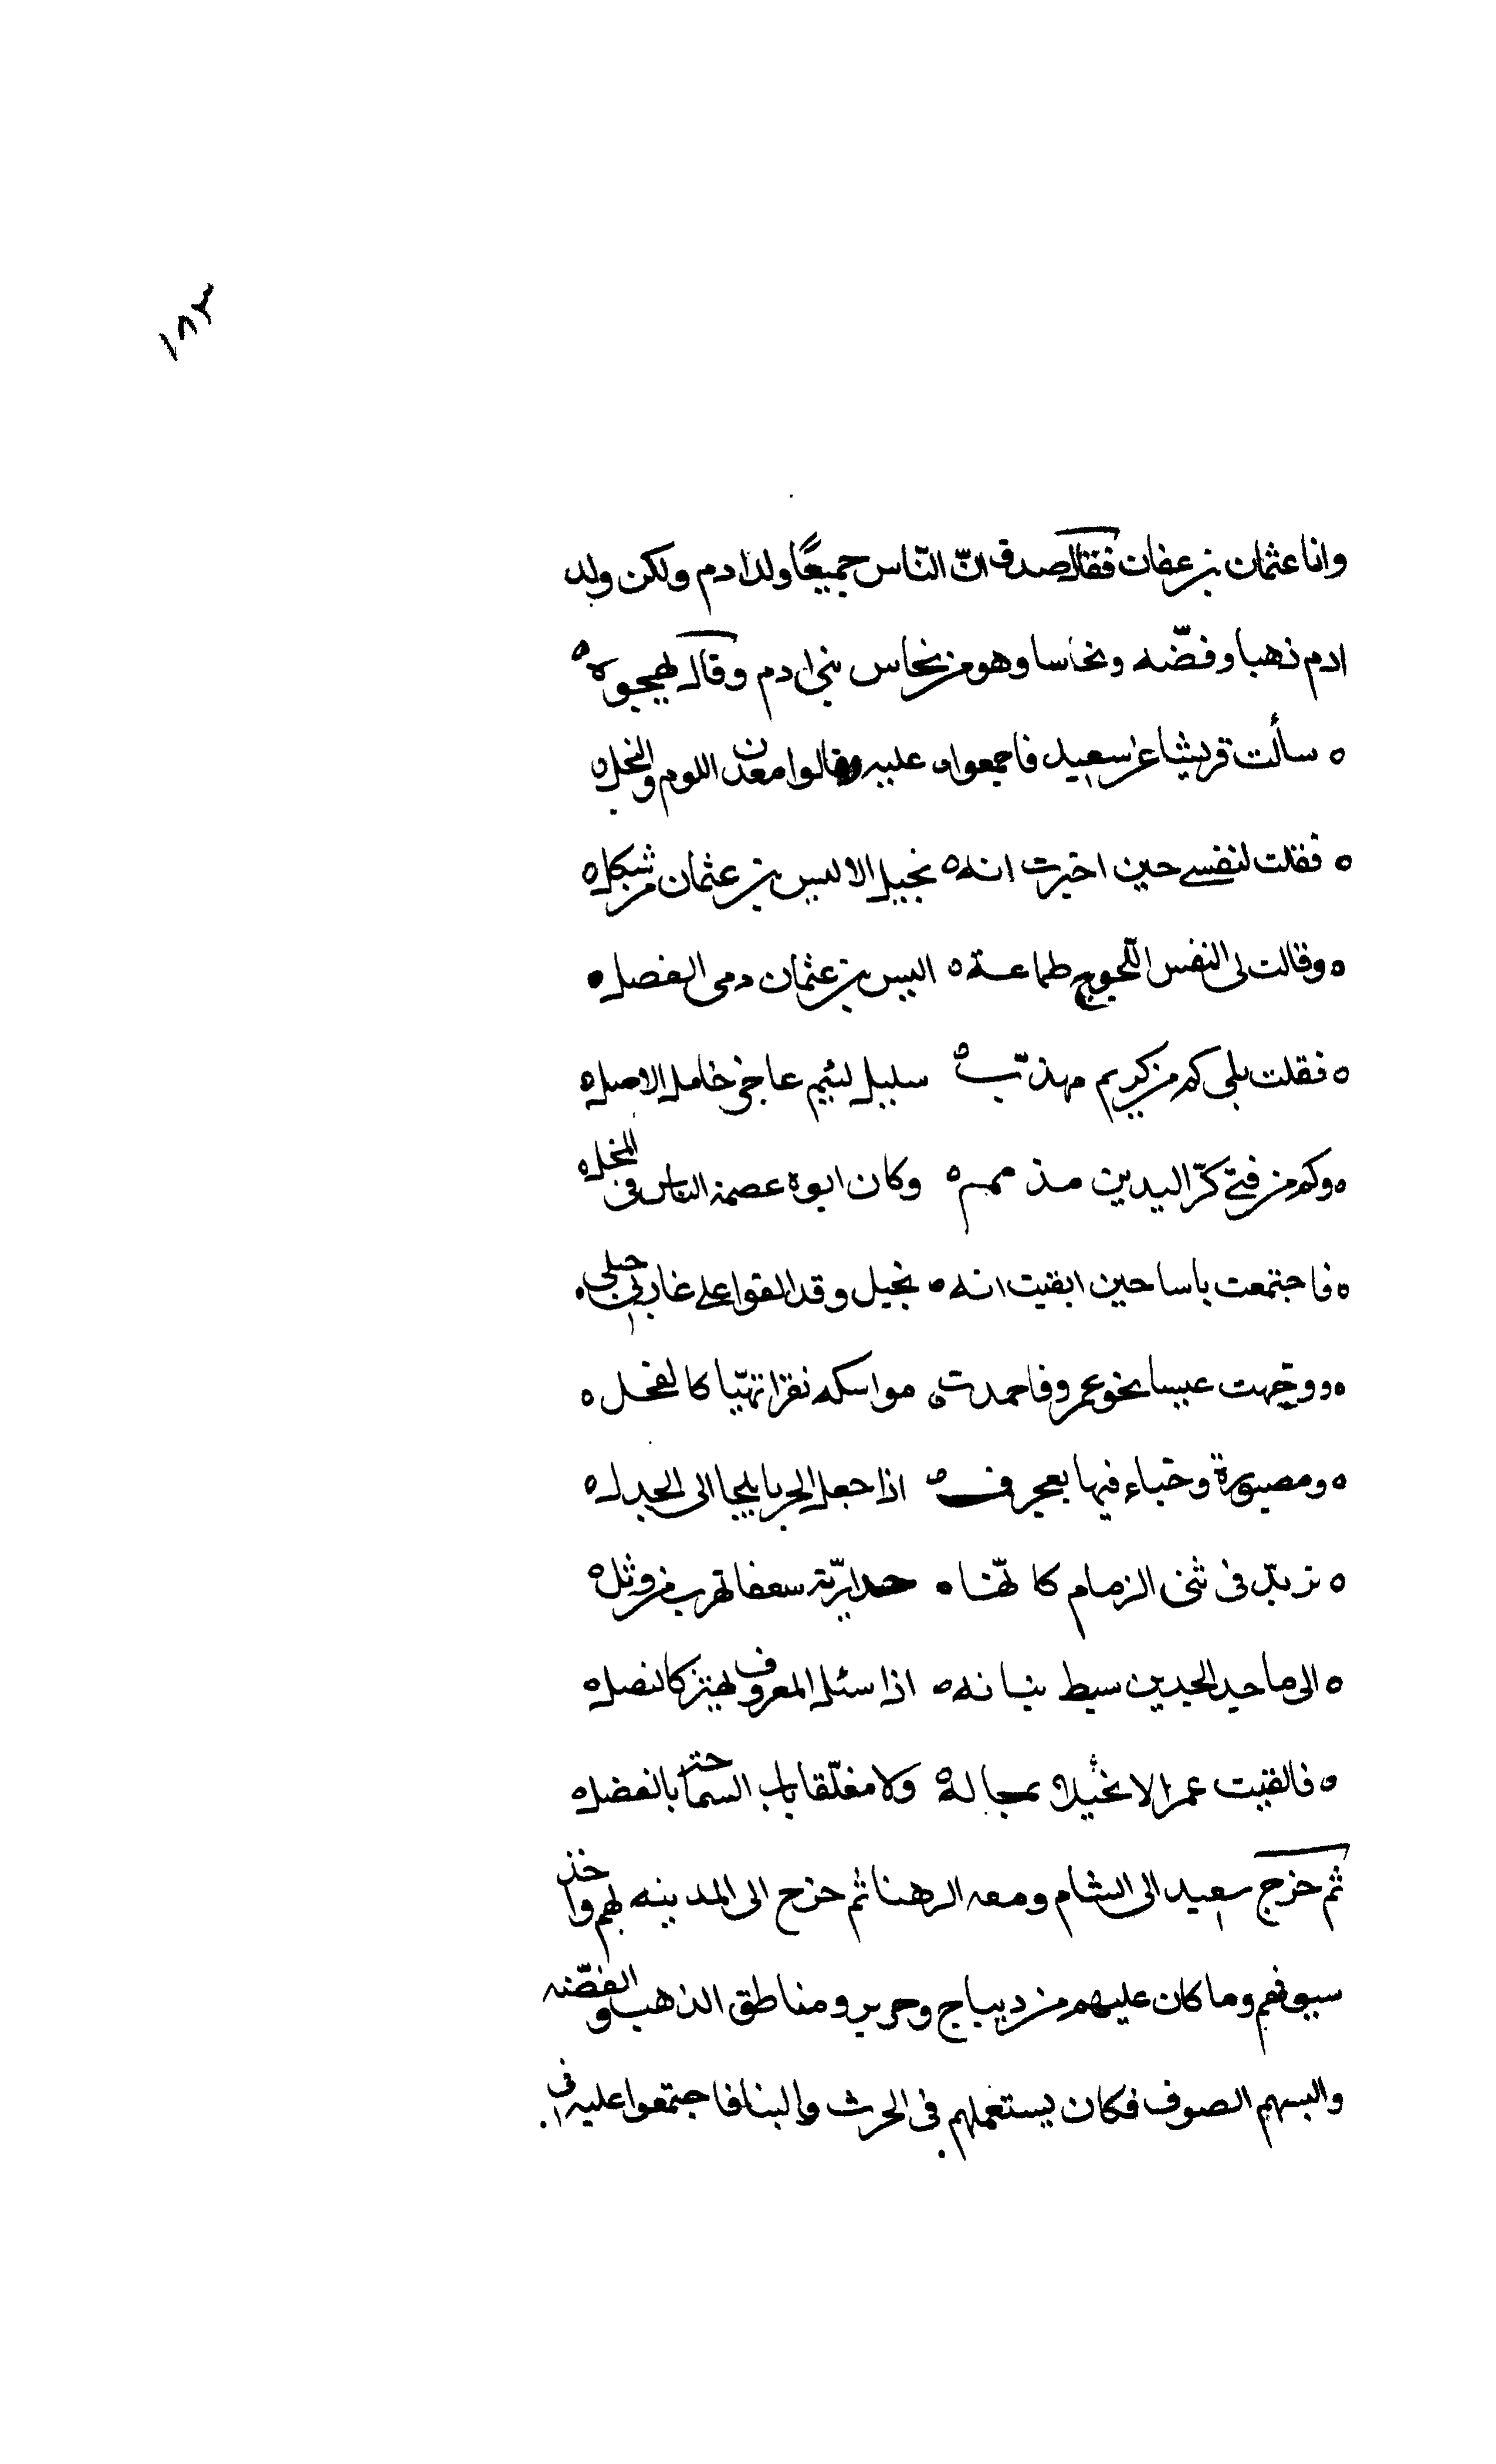 ١٨٣
وانا عثمان بن عفان فقال صدق انّ النّاس جميعًا ولد ادم ولكن ولد
ادم ذهبا وفضّه ونحاسا وهو من نحاس بنى ادم وقال يهجوه
سألت قريشا عن سعيد فاجمعوا عليه وقالوا معدن اللوم والبخل
فقلت لنفسي حين اخبرت انه بخيل الا ليس بن عثمان من شكل
وقالت لى النفس اللّجوج طماعة اليس بن عثمان دمى الفصل
فقلت بلى كم من كريم مهذّب سليل لئيم عاجز خامل الاصل
وكم من فتى كزّ اليدين مذمم وكان ابوه عصمة الناس فى المحل
فاجتمعت باسا حين ايقنت انه بخيل وقد القوا على غاربى حبلى
ووجّهت عيسا نحو عمرو فاحمدت
ومصبورة وخباء فيها بعجرف اذا جعل الحربا يلجا الى الجدل
تزيّل فى ثنى الزمام كا نّهنا
الى ماجد الجدين سبط بنانه اذا سئل المعروف يهتز كالنصل
فالفيت عمرا لا بخيلا بماله ولا مغلقا باب السماحة بالفضل
ثم خرج سعيد الى الشام ومعه الرهنا ثم خرج الى المدينه بهم واخذ
سيوفهم وما كان عليهم من ديباج وحرير ومناطق الذهب والفضّه
والبسهم الصوف فكان يستعملهم فى الحرث والبنا فاجتمعوا عليه فى